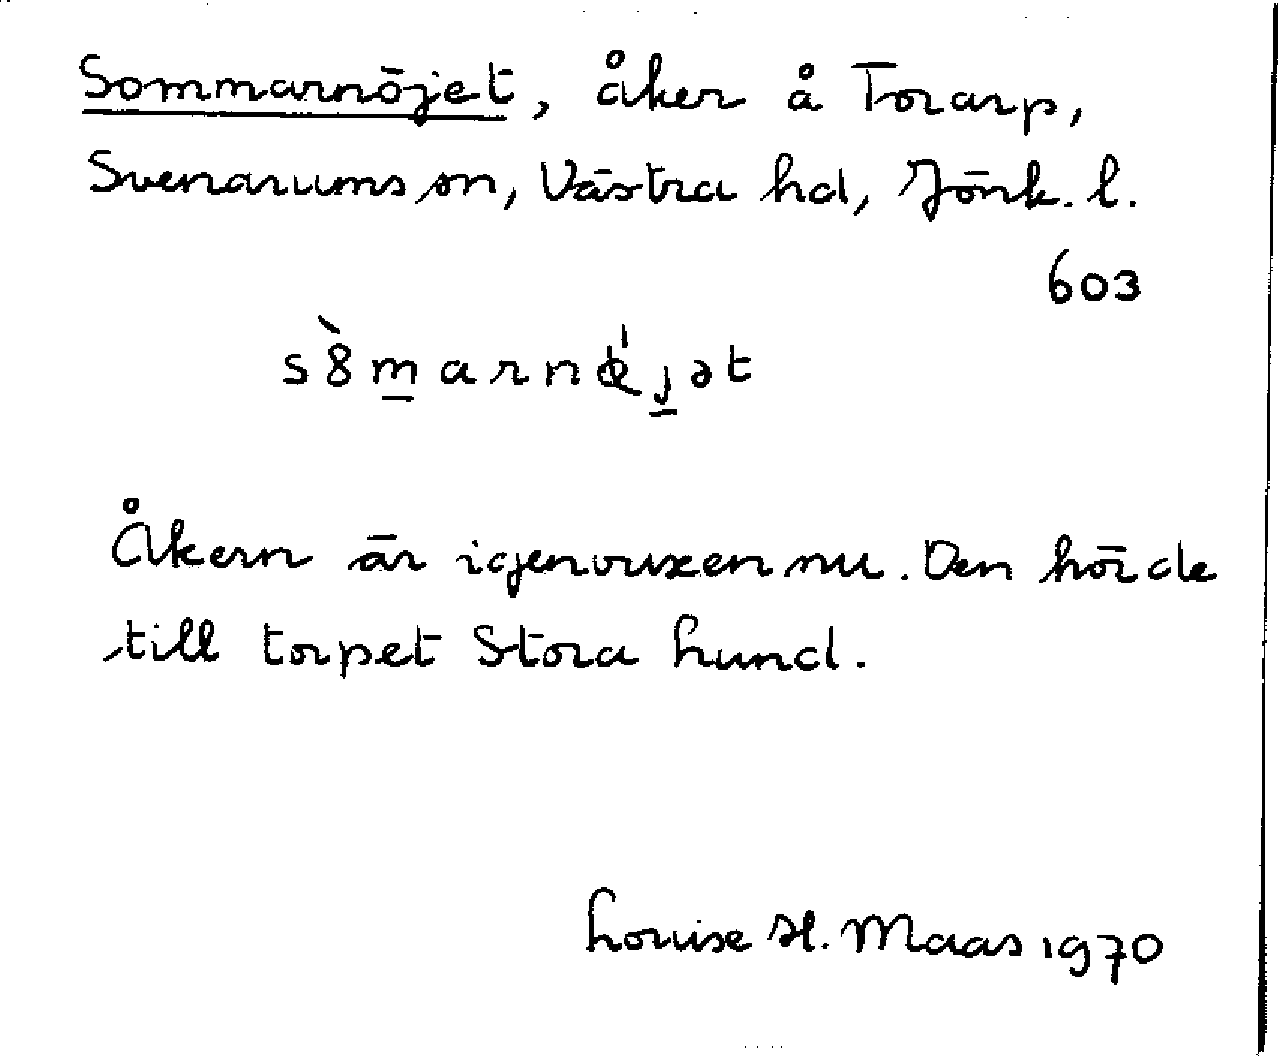 Sommarnöjet, åker å Torarp,
Svenarums sn, Västra hd, Jönk. l.
603
s8̀marnǿjət
Åkern är igenvuxen nu. Den hörde
till torpet Stora Lund.
Louise H. Maas 1970